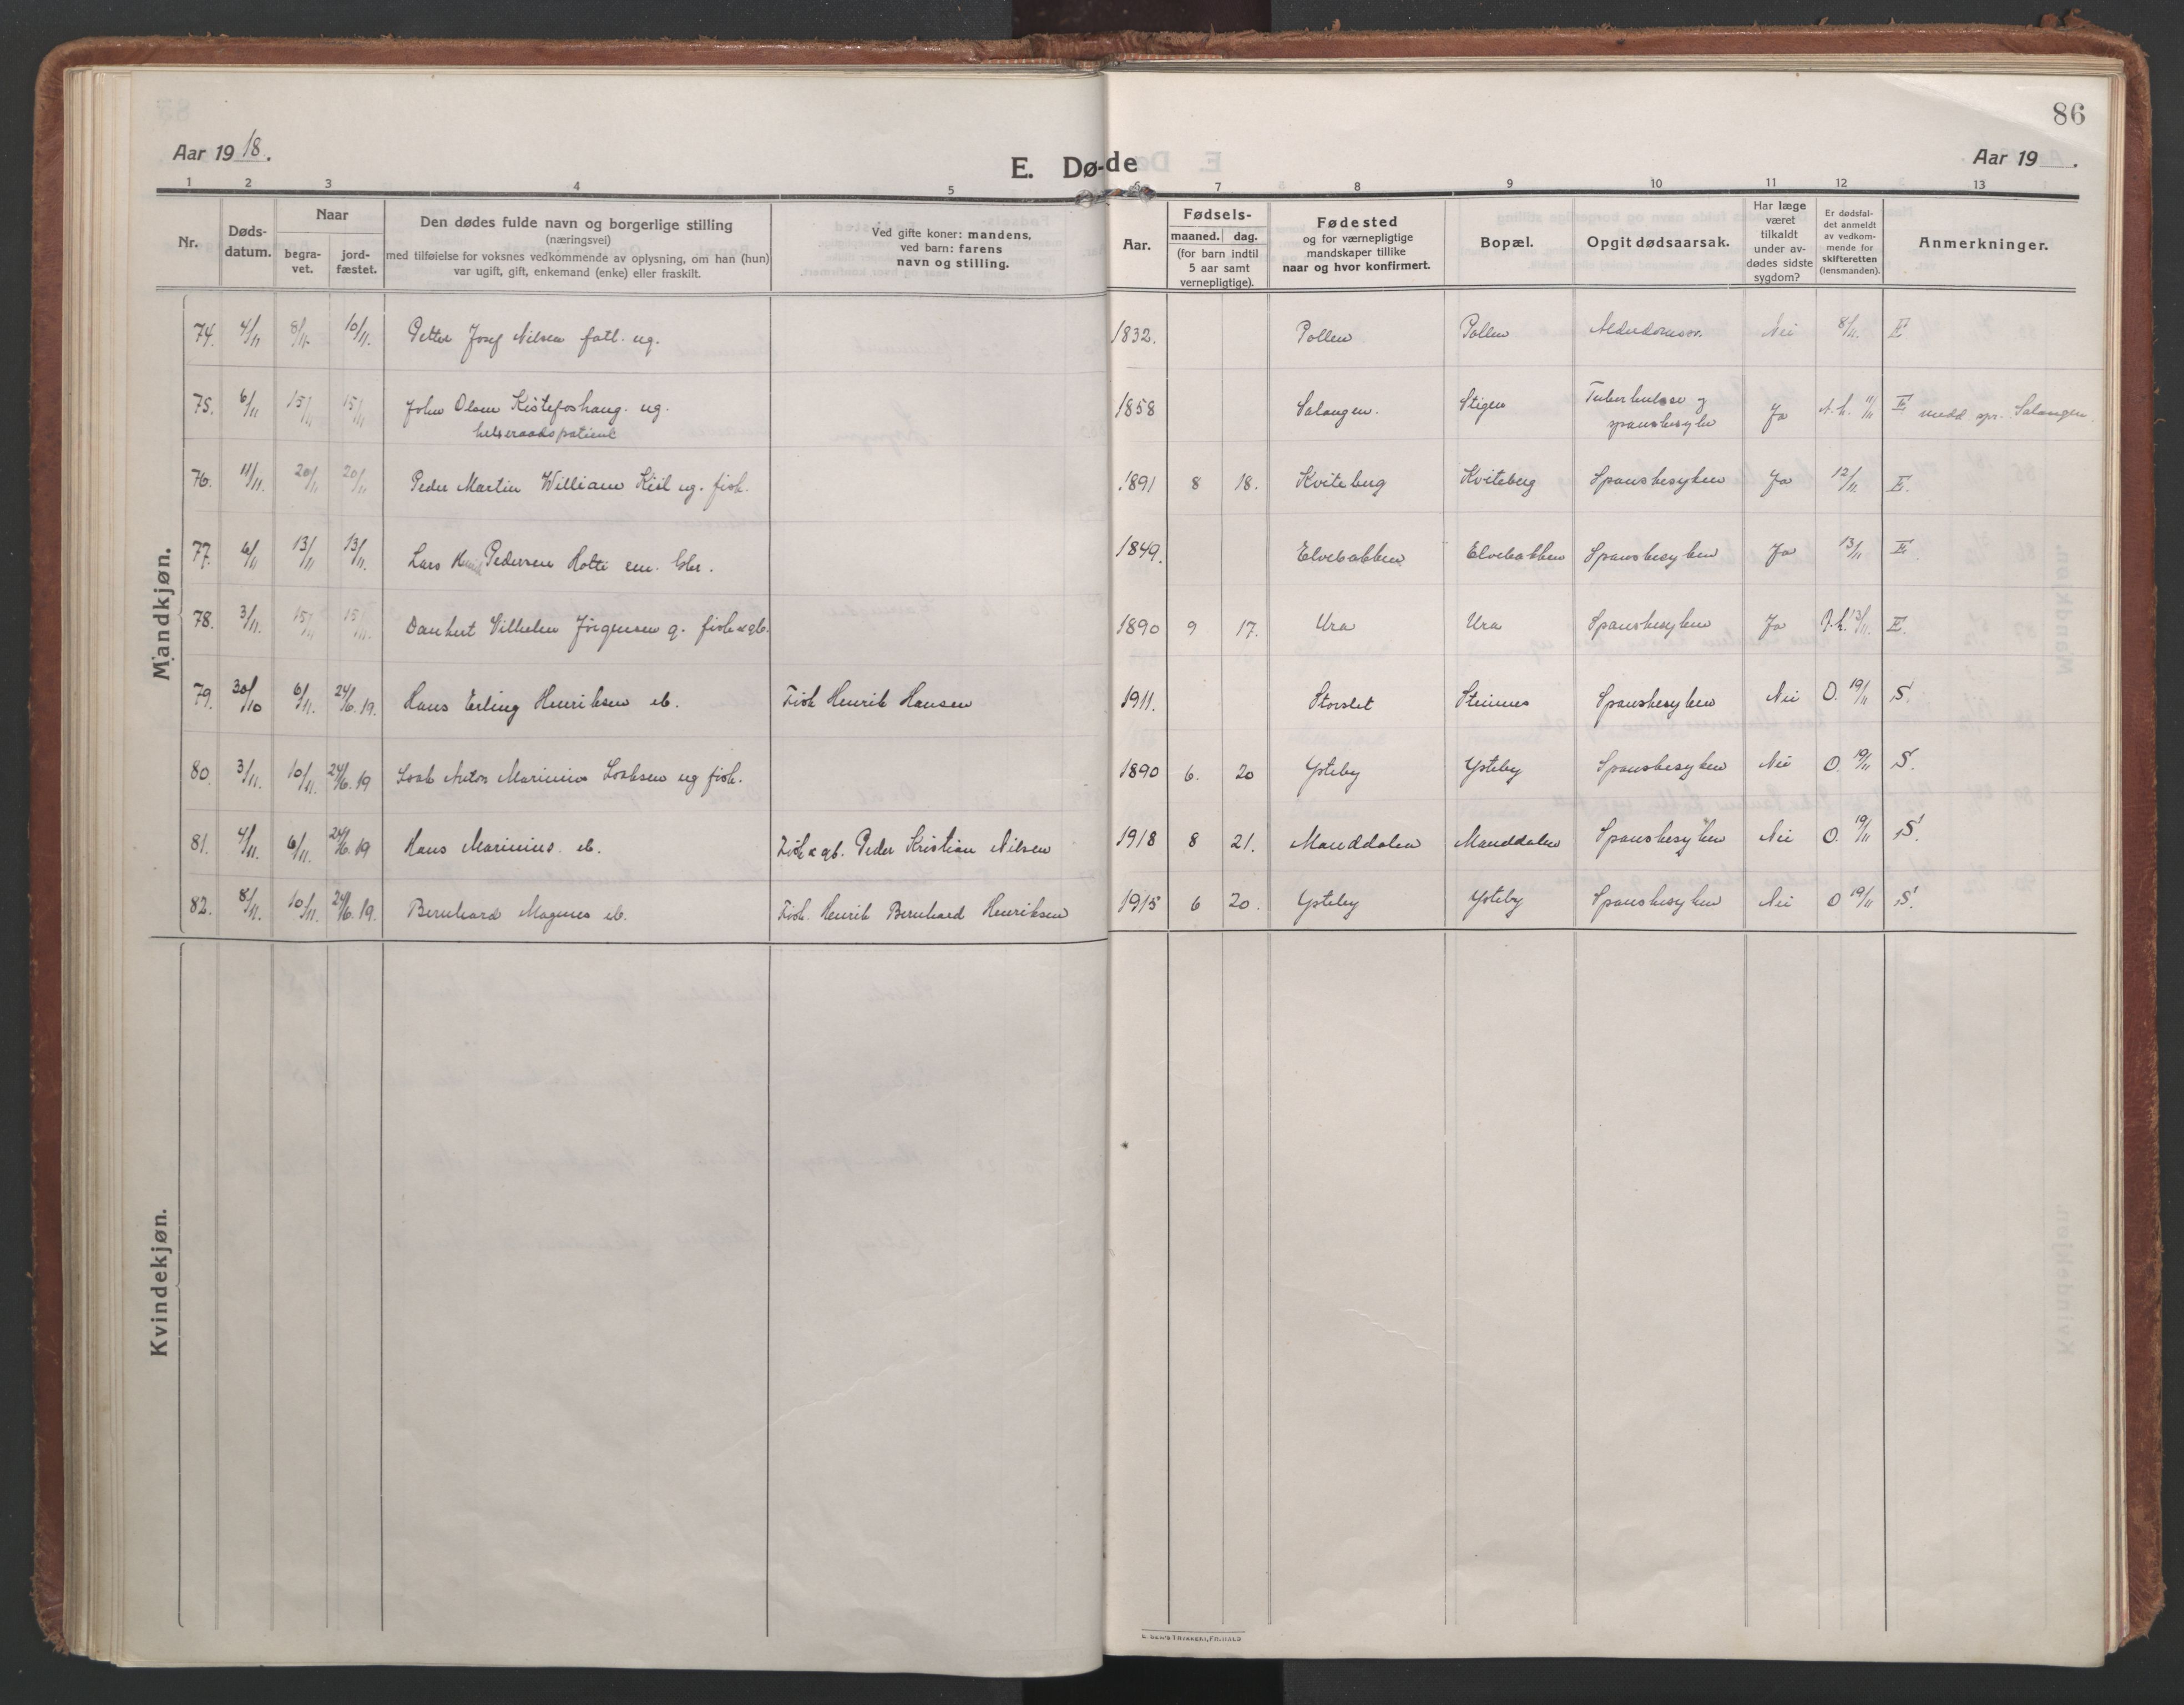 86
Aar 1918.
E. Dø-de
Aar 19 .
1 2 3 4 5 6 7 8 9 10 11 12 13
Nr.
Døds-
datum.
Naar
begra-
vet.
jord-
fæstet.
Den dødes fulde navn og borgerlige stilling
(næringsvei)
med tilføielse for voksnes vedkommende av oplysning, om han (hun)
var ugift, gift, enkemand (enke) eller fraskilt.
Ved gifte koner: mandens,
ved barn: farens
navn og stilling.
Aar.
Fødsels-
maaned. dag.
(for barn indtil
5 aar samt
vernepligtige).
Fødested
og for værnepligtige
mandskaper tillike
naar og hvor konfirmert.
Bopæl.
Opgit dødsaarsak.
Har læge
været
tilkaldt
under av-
dødes sidste
sygdom?
Er dødsfal-
det anmeldt
av vedkom-
mende for
skifteretten
(lensmanden).
Anmerkninger.
Mandkjøn.
74. 4/11 8/11 10/11. Petter Josef Nilsen fatl. ug. 1832. Pollen Pollen Alderdomssv. Nei 8/11. E
75. 6/11 15/11 15/11 John Olsen Kistefoshaug. ug. 1858 Salangen. Stigen Tuberkulose og Ja 11/11 E medd spr. Salangen
helseraadspatient spanskesyke
76. 11/11. 20/11 20/11 Peder Martin William Kiil ug. fisk. 1891 8 18. Kviteberg Kviteberg Spanskesyken Ja 12/11. E.
77. 6/11 13/11 13/11. Lars Henrik Pedersen Hotti em. 1849. Elvebakken Elvebakken Spanskesyken Ja 13/11 E.
78. 3/11. 15/11 15/11. Danhert Vilhelm Jørgensen g. fisk & gb. 1890 9 17. Ura Ura Spanskesyken Ja 13/11. E.
79. 30/10 6/11. 24/6.19. Hans Erling Henriksen eb. Fisk Henrik Hansen 1911. Storslet Steinnes Spanskesyken Nei O. 19/11 S.
80. 3/11. 10/11. 24/6.19 Isak Anton Marinius Isaksen ug fisk. 1890 6. 20 Ysteby Ysteby Spanskesyken Nei O. 19/11 S.
81. 4/11. 6/11. 24/6.19 Hans Marinius eb. Fisk & gb. Peder Kristian Nilsen 1918 8 21. Manddalen Manddalen Spanskesyken Nei O. 19/11 S.
82. 8/11. 10/11. 24/6.19. Bernhard Magnus eb. Fisk. Henrik Bernhard Henriksen 1915 6 20. Ysteby Ysteby Spanskesyken Nei O 19/11 S.
Kvindekjøn.